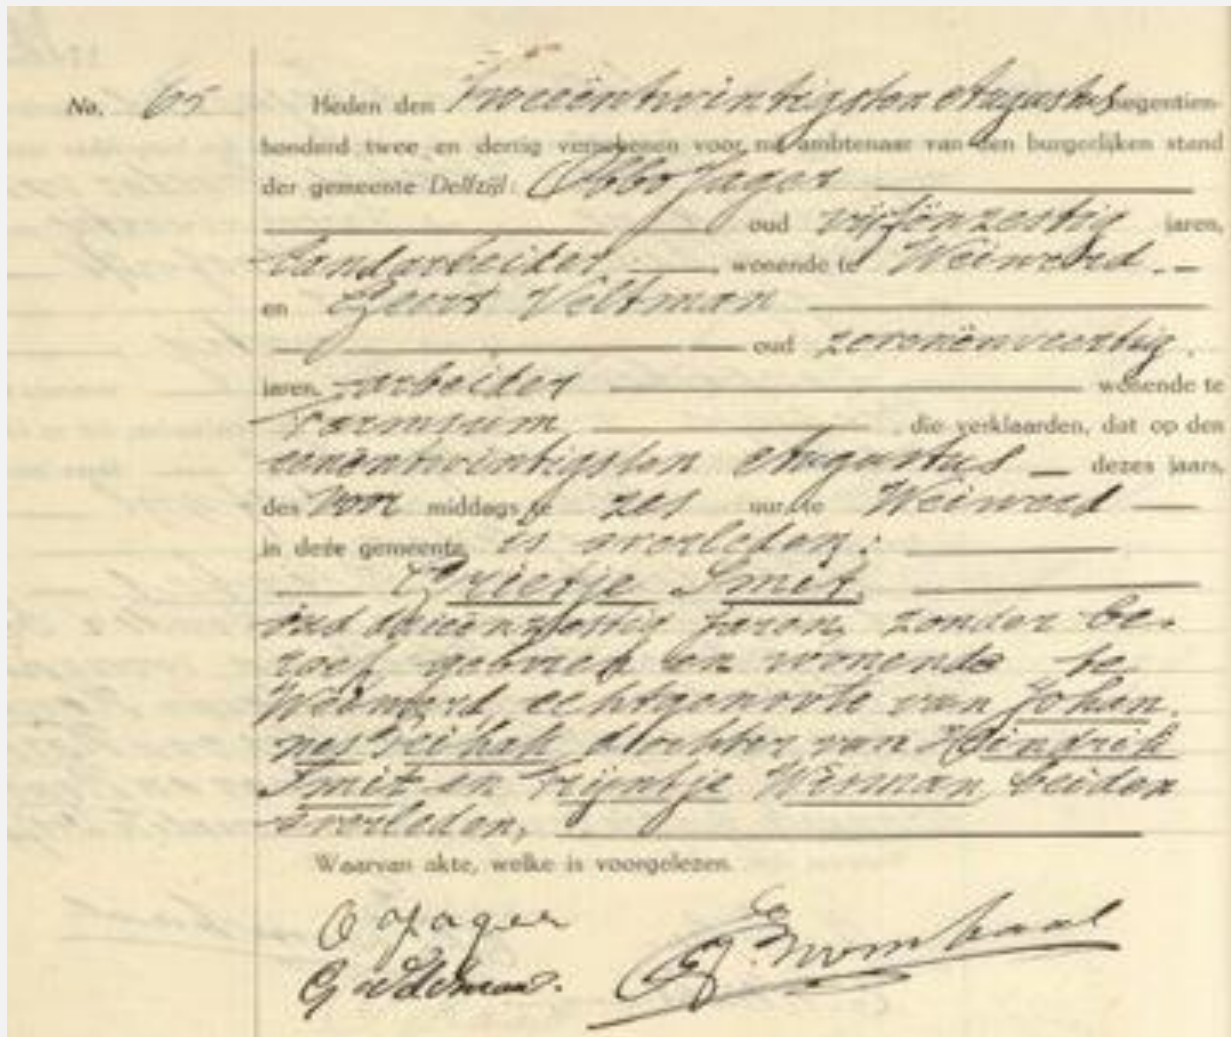 No. 65 Heden den Tweeëntwintigsten Augustus negentien-
honderd twee en dertig verschenen voor mij ambtenaar van den burgerlijken stand
der gemeente Delfzijl: Obbo Jager
oud vijfënzestig jaren,
landarbeider, wonende te Weiwerd.
en Geert Veltman
oud zevenënveertig
jaren, arbeider wonende te
Farmsum die verklaarden, dat op den
eenëntwintigsten Augustus dezes jaars,
des voor middags te zes uur, te Weiwerd
in deze gemeente is overleden:
Grietje Smit,
oud drieënzestig jaren, zonder be-
roep, geboren en wonende te
Weiwerd, echtgenoote van Johan-
nes dochter van Hindrik
Smit en Trijntje beiden
overleden,
Waarvan akte, welke is voorgelezen.
O Jager
G Veltman.